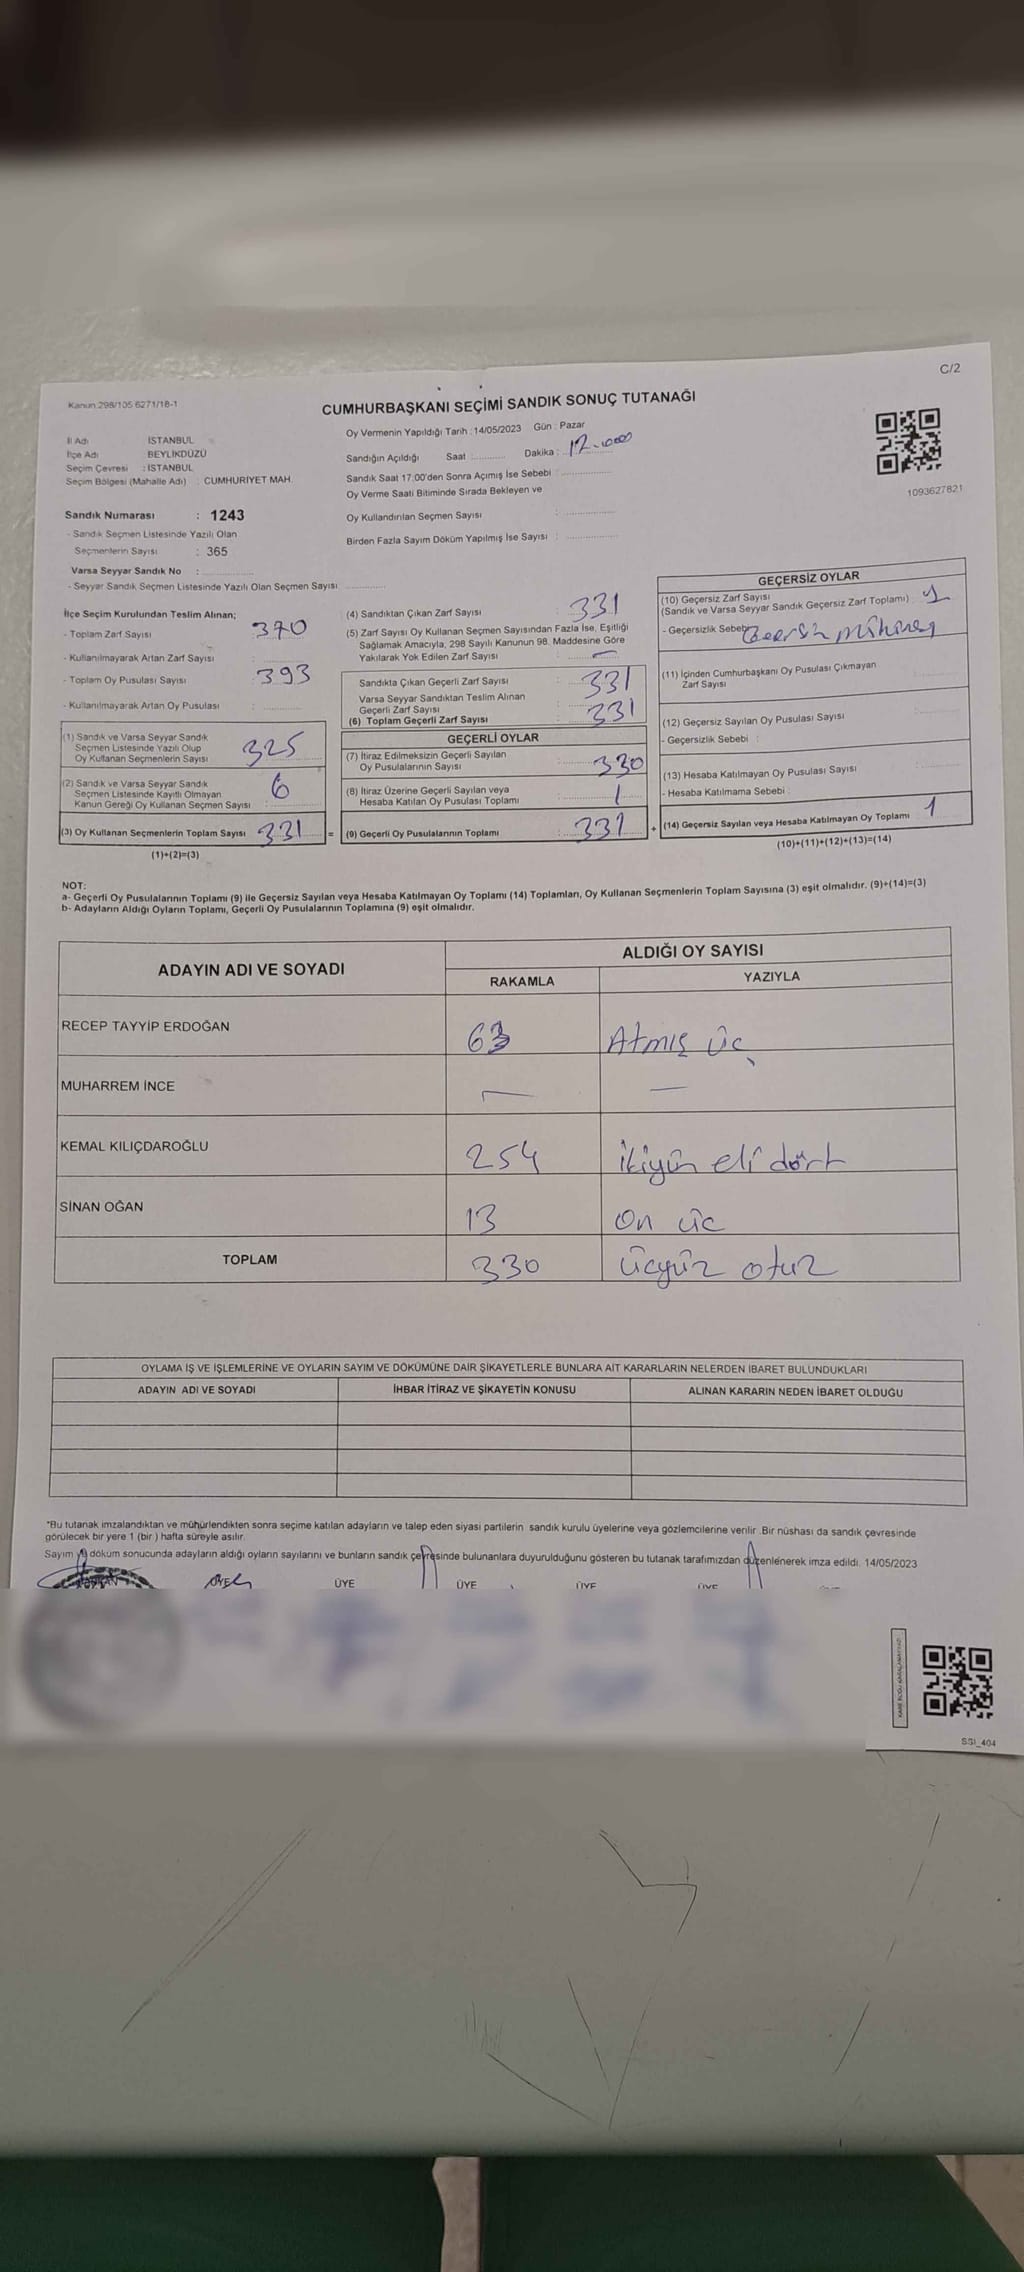 C/2
Kanun 298/105 6271/18-1
CUMHURBAŞKANI SEÇİMİ SANDIK SONUÇ TUTANAĞI
İl Adı İSTANBUL
İlçe Adı BEYLİKDÜZÜ
Seçim Çevresi : İSTANBUL
Seçim Bölgesi (Mahalle Adı) : CUMHURİYET MAH.
Sandık Numarası : 1243
- Sandık Seçmen Listesinde Yazılı Olan
Seçmenlerin Sayısı : 365
Varsa Seyyar Sandık No :
- Seyyar Sandık Seçmen Listesinde Yazılı Olan Seçmen Sayısı
Oy Vermenin Yapıldığı Tarih : 14/05/2023 Gün : Pazar
Sandığın Açıldığı Saat Dakika :
Sandık Saat 17:00'den Sonra Açımış İse Sebebi :
Oy Verme Saati Bitiminde Sırada Bekleyen ve
Oy Kullandırılan Seçmen Sayısı :
Birden Fazla Sayım Döküm Yapılmış İse Sayısı :
1093627821
İlçe Seçim Kurulundan Teslim Alınan;
- Toplam Zarf Sayısı : 370
- Kullanılmayarak Artan Zarf Sayısı
- Toplam Oy Pusulası Sayısı : 393
- Kullanılmayarak Artan Oy Pusulası :
(1) Sandık ve Varsa Seyyar Sandık
Seçmen Listesinde Yazılı Olup
Oy Kullanan Seçmenlerin Sayısı 325
(2) Sandık ve Varsa Seyyar Sandık
Seçmen Listesinde Kayıtlı Olmayan
Kanun Gereği Oy Kullanan Seçmen Sayısı : 6
(3) Oy Kullanan Seçmenlerin Toplam Sayısı 331 =
(1)+(2)=(3)
(4) Sandıktan Çıkan Zarf Sayısı : 331
(5) Zarf Sayısı Oy Kullanan Seçmen Sayısından Fazla İse, Eşitliği
Sağlamak Amacıyla, 298 Sayılı Kanunun 98. Maddesine Göre
Yakılarak Yok Edilen Zarf Sayısı : —
Sandıkta Çıkan Geçerli Zarf Sayısı : 331
Varsa Seyyar Sandıktan Teslim Alınan
Geçerli Zarf Sayısı :
(6) Toplam Geçerli Zarf Sayısı 331
GEÇERLİ OYLAR
(7) İtiraz Edilmeksizin Geçerli Sayılan
Oy Pusulalarının Sayısı : 330
(8) İtiraz Üzerine Geçerli Sayılan veya
Hesaba Katılan Oy Pusulası Toplamı : 1
(9) Geçerli Oy Pusulalarının Toplamı : 331 +
GEÇERSİZ OYLAR
(10) Geçersiz Zarf Sayısı
(Sandık ve Varsa Seyyar Sandık Geçersiz Zarf Toplamı) : 1
- Geçersizlik Sebebi
(11) İçinden Cumhurbaşkanı Oy Pusulası Çıkmayan
Zarf Sayısı
(12) Geçersiz Sayılan Oy Pusulası Sayısı
- Geçersizlik Sebebi :
(13) Hesaba Katılmayan Oy Pusulası Sayısı
- Hesaba Katılmama Sebebi :
(14) Geçersiz Sayılan veya Hesaba Katılmayan Oy Toplamı 1
(10)+(11)+(12)+(13)=(14)
NOT:
a- Geçerli Oy Pusulalarının Toplamı (9) ile Geçersiz Sayılan veya Hesaba Katılmayan Oy Toplamı (14) Toplamları, Oy Kullanan Seçmenlerin Toplam Sayısına (3) eşit olmalıdır. (9)+(14)=(3)
b- Adayların Aldığı Oyların Toplamı, Geçerli Oy Pusulalarının Toplamına (9) eşit olmalıdır.
ADAYIN ADI VE SOYADI ALDIĞI OY SAYISI
RAKAMLA YAZIYLA
RECEP TAYYİP ERDOĞAN 63 Atmış üç
MUHARREM İNCE — —
KEMAL KILIÇDAROĞLU 254 ikiyüz eli dört
SİNAN OĞAN 13 on üc
TOPLAM 330 ücyüz otuz
OYLAMA İŞ VE İŞLEMLERİNE VE OYLARIN SAYIM VE DÖKÜMÜNE DAİR ŞİKAYETLERLE BUNLARA AİT KARARLARIN NELERDEN İBARET BULUNDUKLARI
ADAYIN ADI VE SOYADI İHBAR İTİRAZ VE ŞİKAYETİN KONUSU ALINAN KARARIN NEDEN İBARET OLDUĞU
*Bu tutanak imzalandıktan ve mühürlendikten sonra seçime katılan adayların ve talep eden siyasi partilerin sandık kurulu üyelerine veya gözlemcilerine verilir .Bir nüshası da sandık çevresinde
görülecek bir yere 1 (bir ) hafta süreyle asılır.
Sayım ve döküm sonucunda adayların aldığı oyların sayılarını ve bunların sandık çevresinde bulunanlara duyurulduğunu gösteren bu tutanak tarafımızdan düzenlenerek imza edildi. 14/05/2023
BAŞKAN ÜYE ÜYE ÜYE ÜYE ÜYE
SSI_404